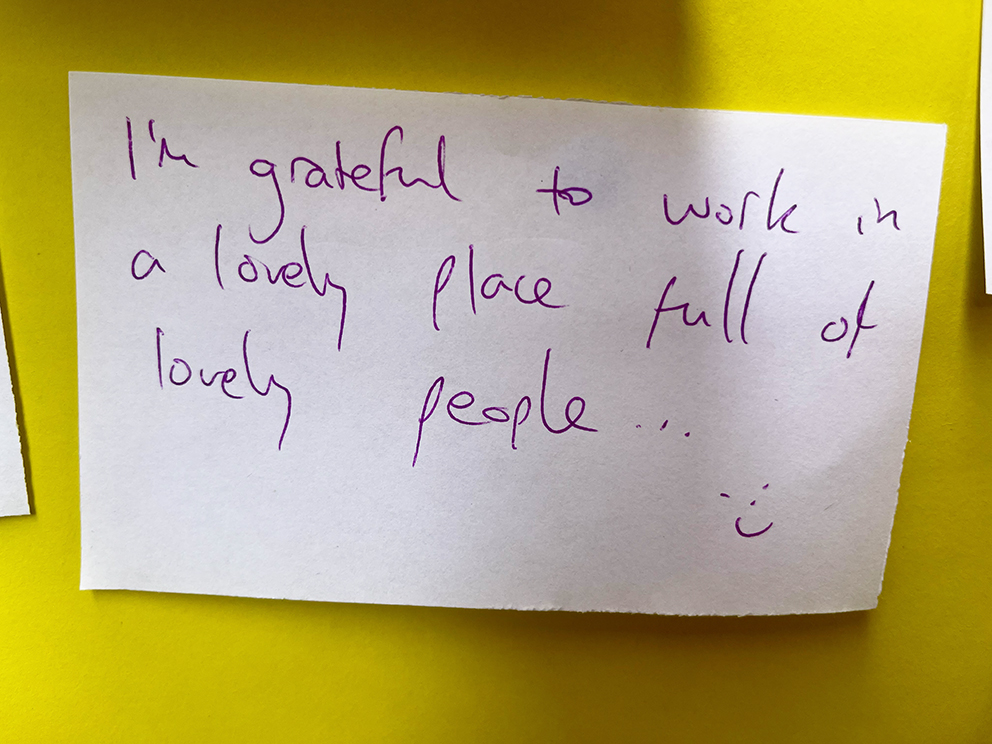 I'm grateful to work in
a lovely place full of
lovely people...